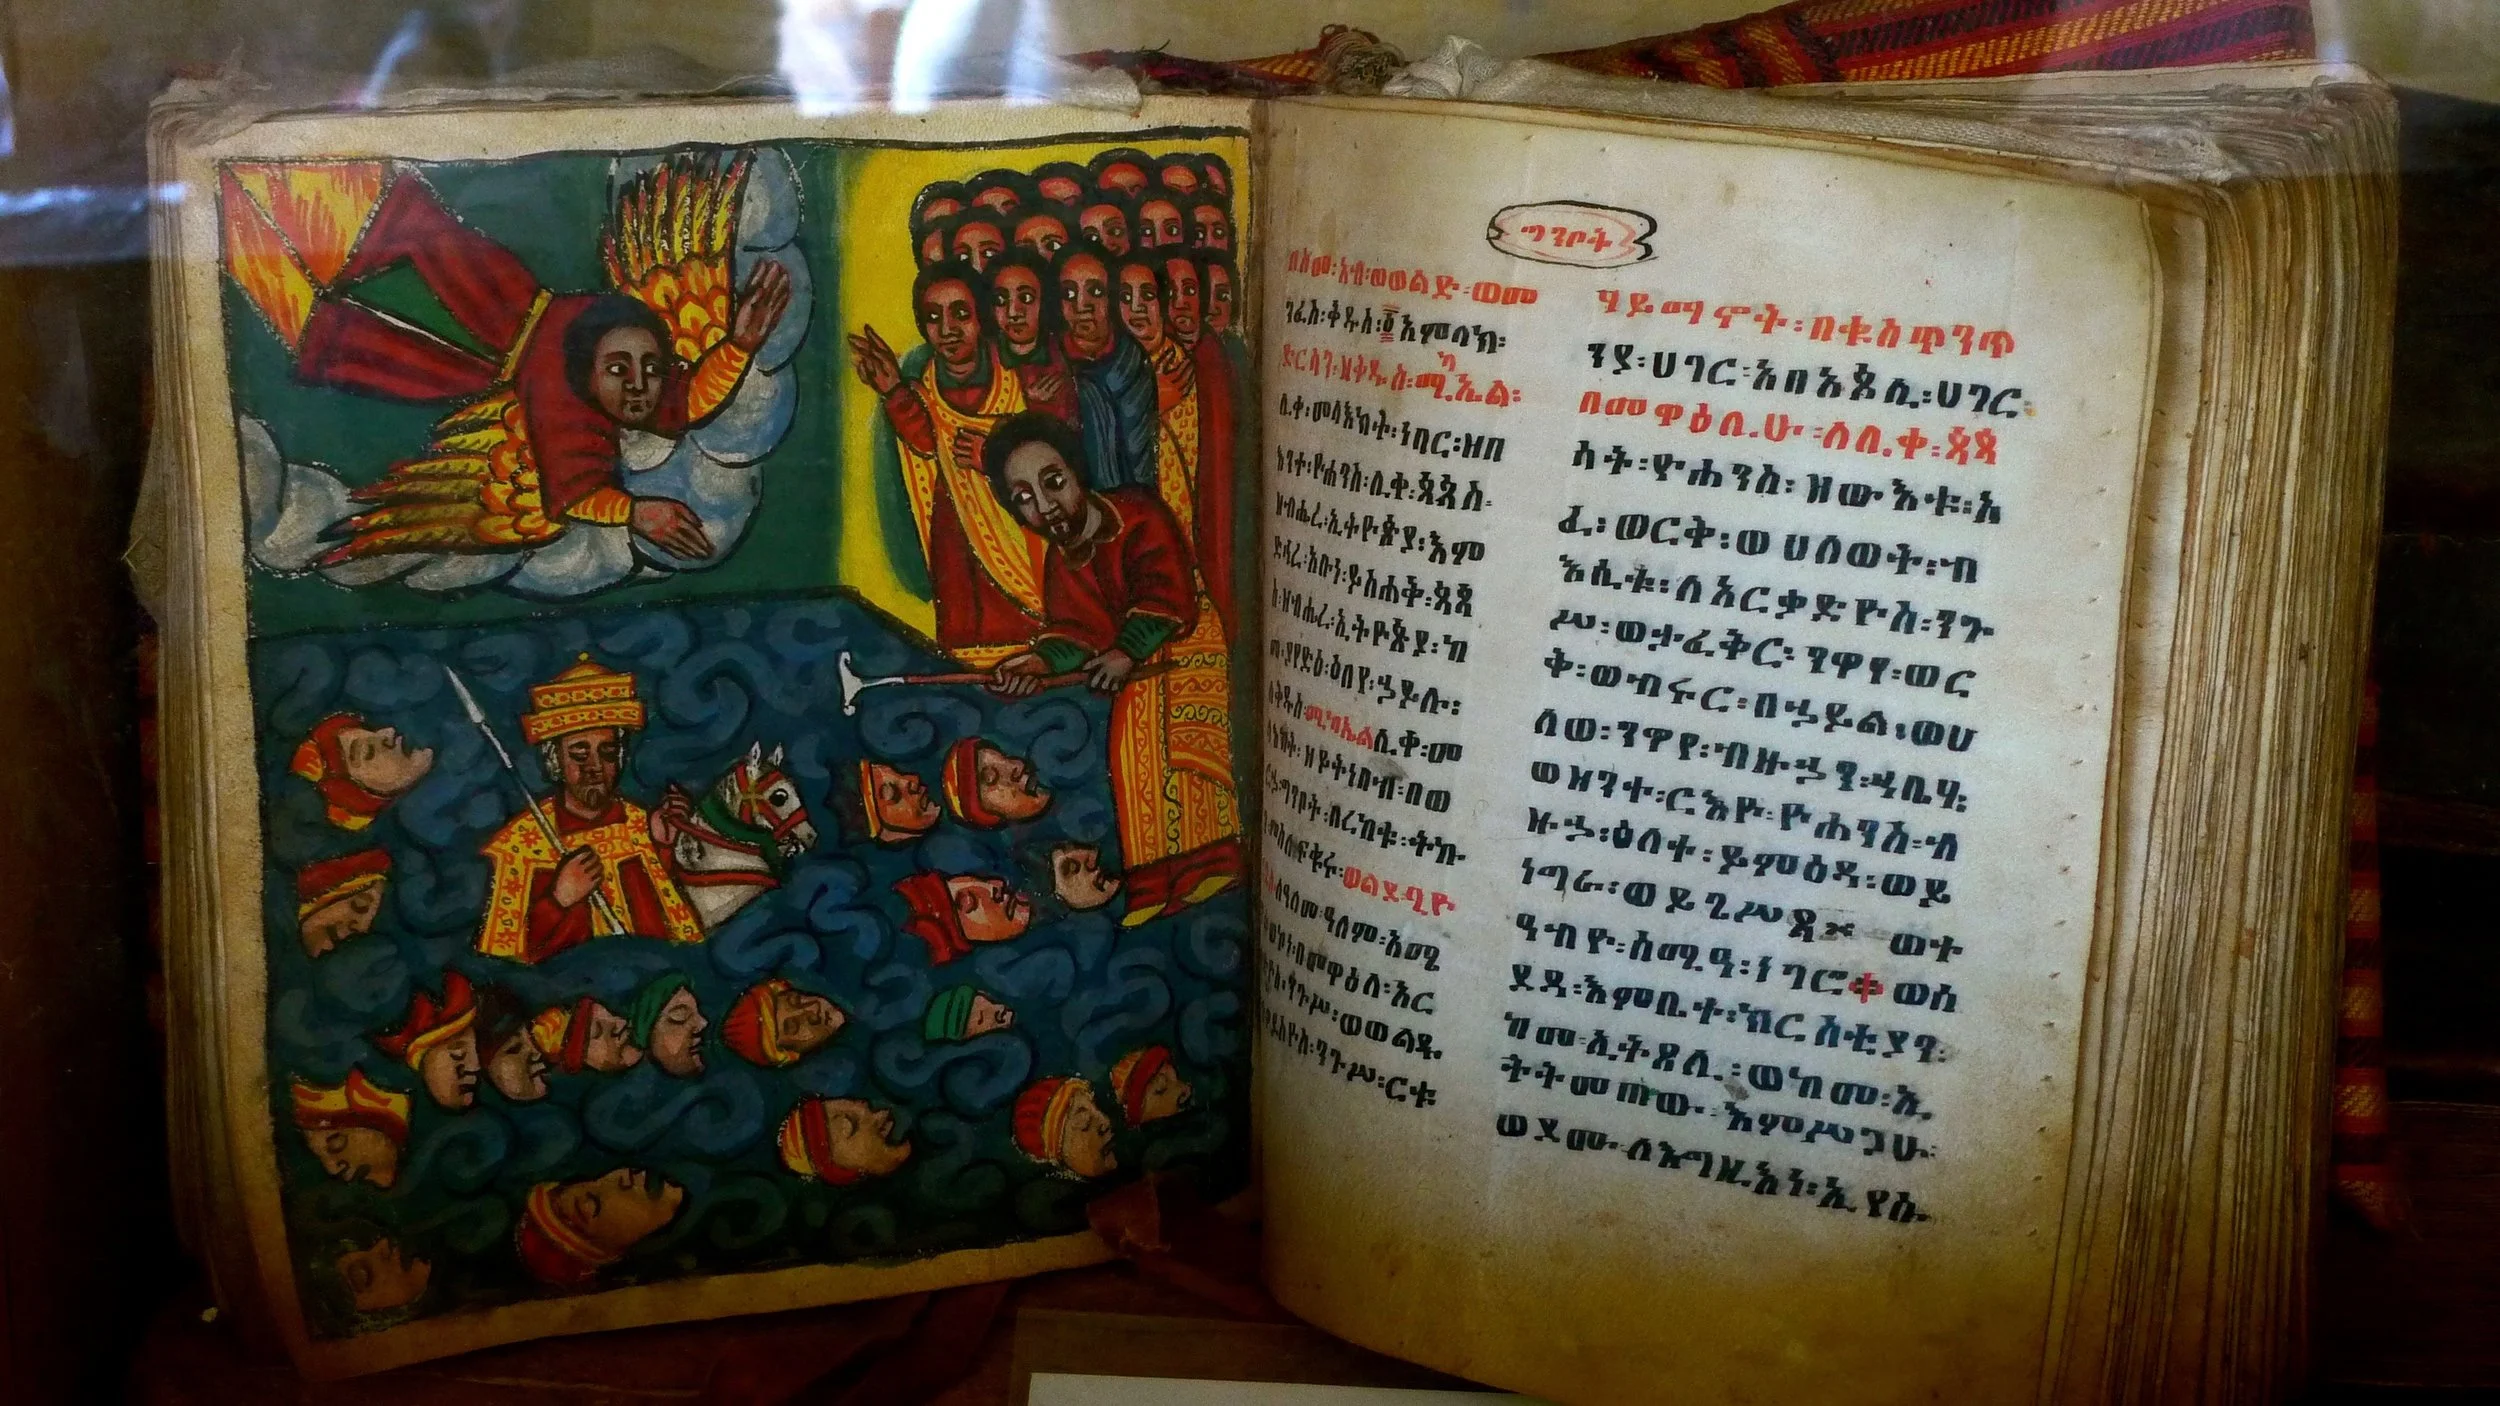 ግንቦት
በስመ፡አብ፡ወወልድ፡ወመ
ንፈስ፡ቅዱስ፡፩አምላክ፡
ድርሳን፡ዘቅዱስ፡ሚካኤል፡
ሊቀ፡መላእክት፡ነበር፡ዝበ
አንተ፡ዮሐንስ፡ሊቀ፡ጳጳስ፡
ዘብሔረ፡ኢትዮጵያ፡እም
ድኅረ፡አቡነ፡ይስሐቅ፡ጳጳ
ስ፡ዘብሔረ፡ኢትዮጵያ፡ከ
መ፡ያየድዕ፡ዕበየ፡ኃይሉ፡
ለቅዱስ፡ሚካኤል፡ሊቀ፡መ
ላእክት፡ዘይትነበብ፡በወ
ርኃ፡ግንቦት፡በረከቱ፡ትኩ
ፍቁሩ፡ወልደ፡ጊዮ
ለዓለመ፡ዓለም፡አሜ
ወኮነ፡በመዋዕለ፡አር
ንጉሥ፡ወወልዱ
ንጉሥ፡ርቱ
ሃይማኖት፡በቁስጥንጥ
ንያ፡ሀገር፡አበአጼሲ፡ሀገር፡
በመዋዕሊሁ፡ለሊቀ፡ጳጳ
ሳት፡ዮሐንስ፡ዘውእቱ፡አ
ፈ፡ወርቅ፡ወሀለወት፡ብ
እሲቱ፡ለአርቃድዮስ፡ንጉ
ሥ፡ወታፈቅር፡ንዋየ፡ወር
ቅ፡ወብሩር፡በኃይል፡ወሀ
ለወ፡ንዋየ፡ብዙኃን፡ኃቤሃ፡
ወዘንተ፡ርእዮ፡ዮሐንስ፡ብ
ዙኃ፡ዕለተ፡ይምዕዳ፡ወይ
ነግራ፡ወይጌሥጻ ወተ
ዓብዮ፡ሰሚዓ፡ነገሮ ወሰ
ደዳ፡እምቤተ፡ክርስቲያን፡
ከመ፡ኢትጸሊ፡ወከመ፡ኢ
ትትመጠው፡እምሥጋሁ፡
ወደሙ፡ለእግዚእነ፡ኢየሱ